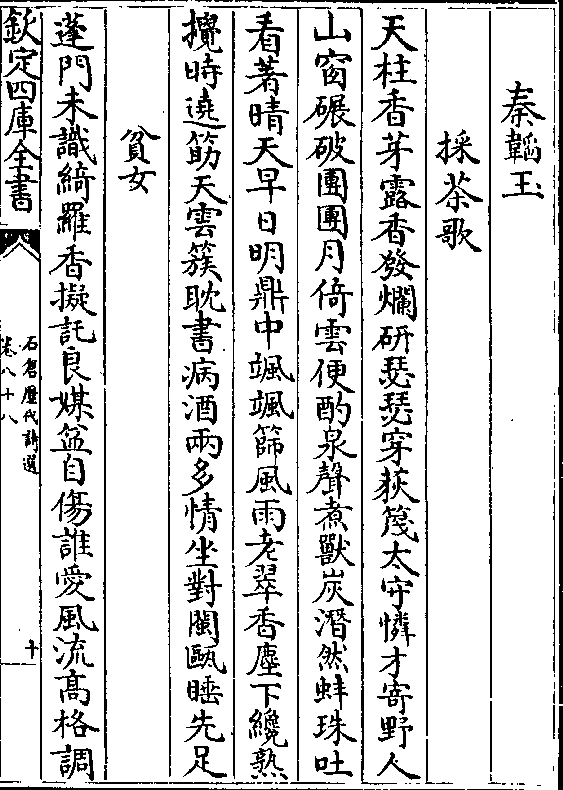 秦韜玉
採茶歌
天柱香芽露香發爛研瑟瑟穿荻篾太守憐才寄野人
山窗碾破團團月倚雲便酌泉聲煮獸炭潛然蚌珠吐
看著晴天早日明鼎中颯颯篩風雨老翠香塵下纔熟
攪時遶筯天雲簇耽書病酒兩多情坐對閩甌睡先足
貧女
蓬門未識綺羅香擬託良媒益自傷誰愛風流高格調
欽定四庫全書
石倉歷代詩選
卷八十八
十